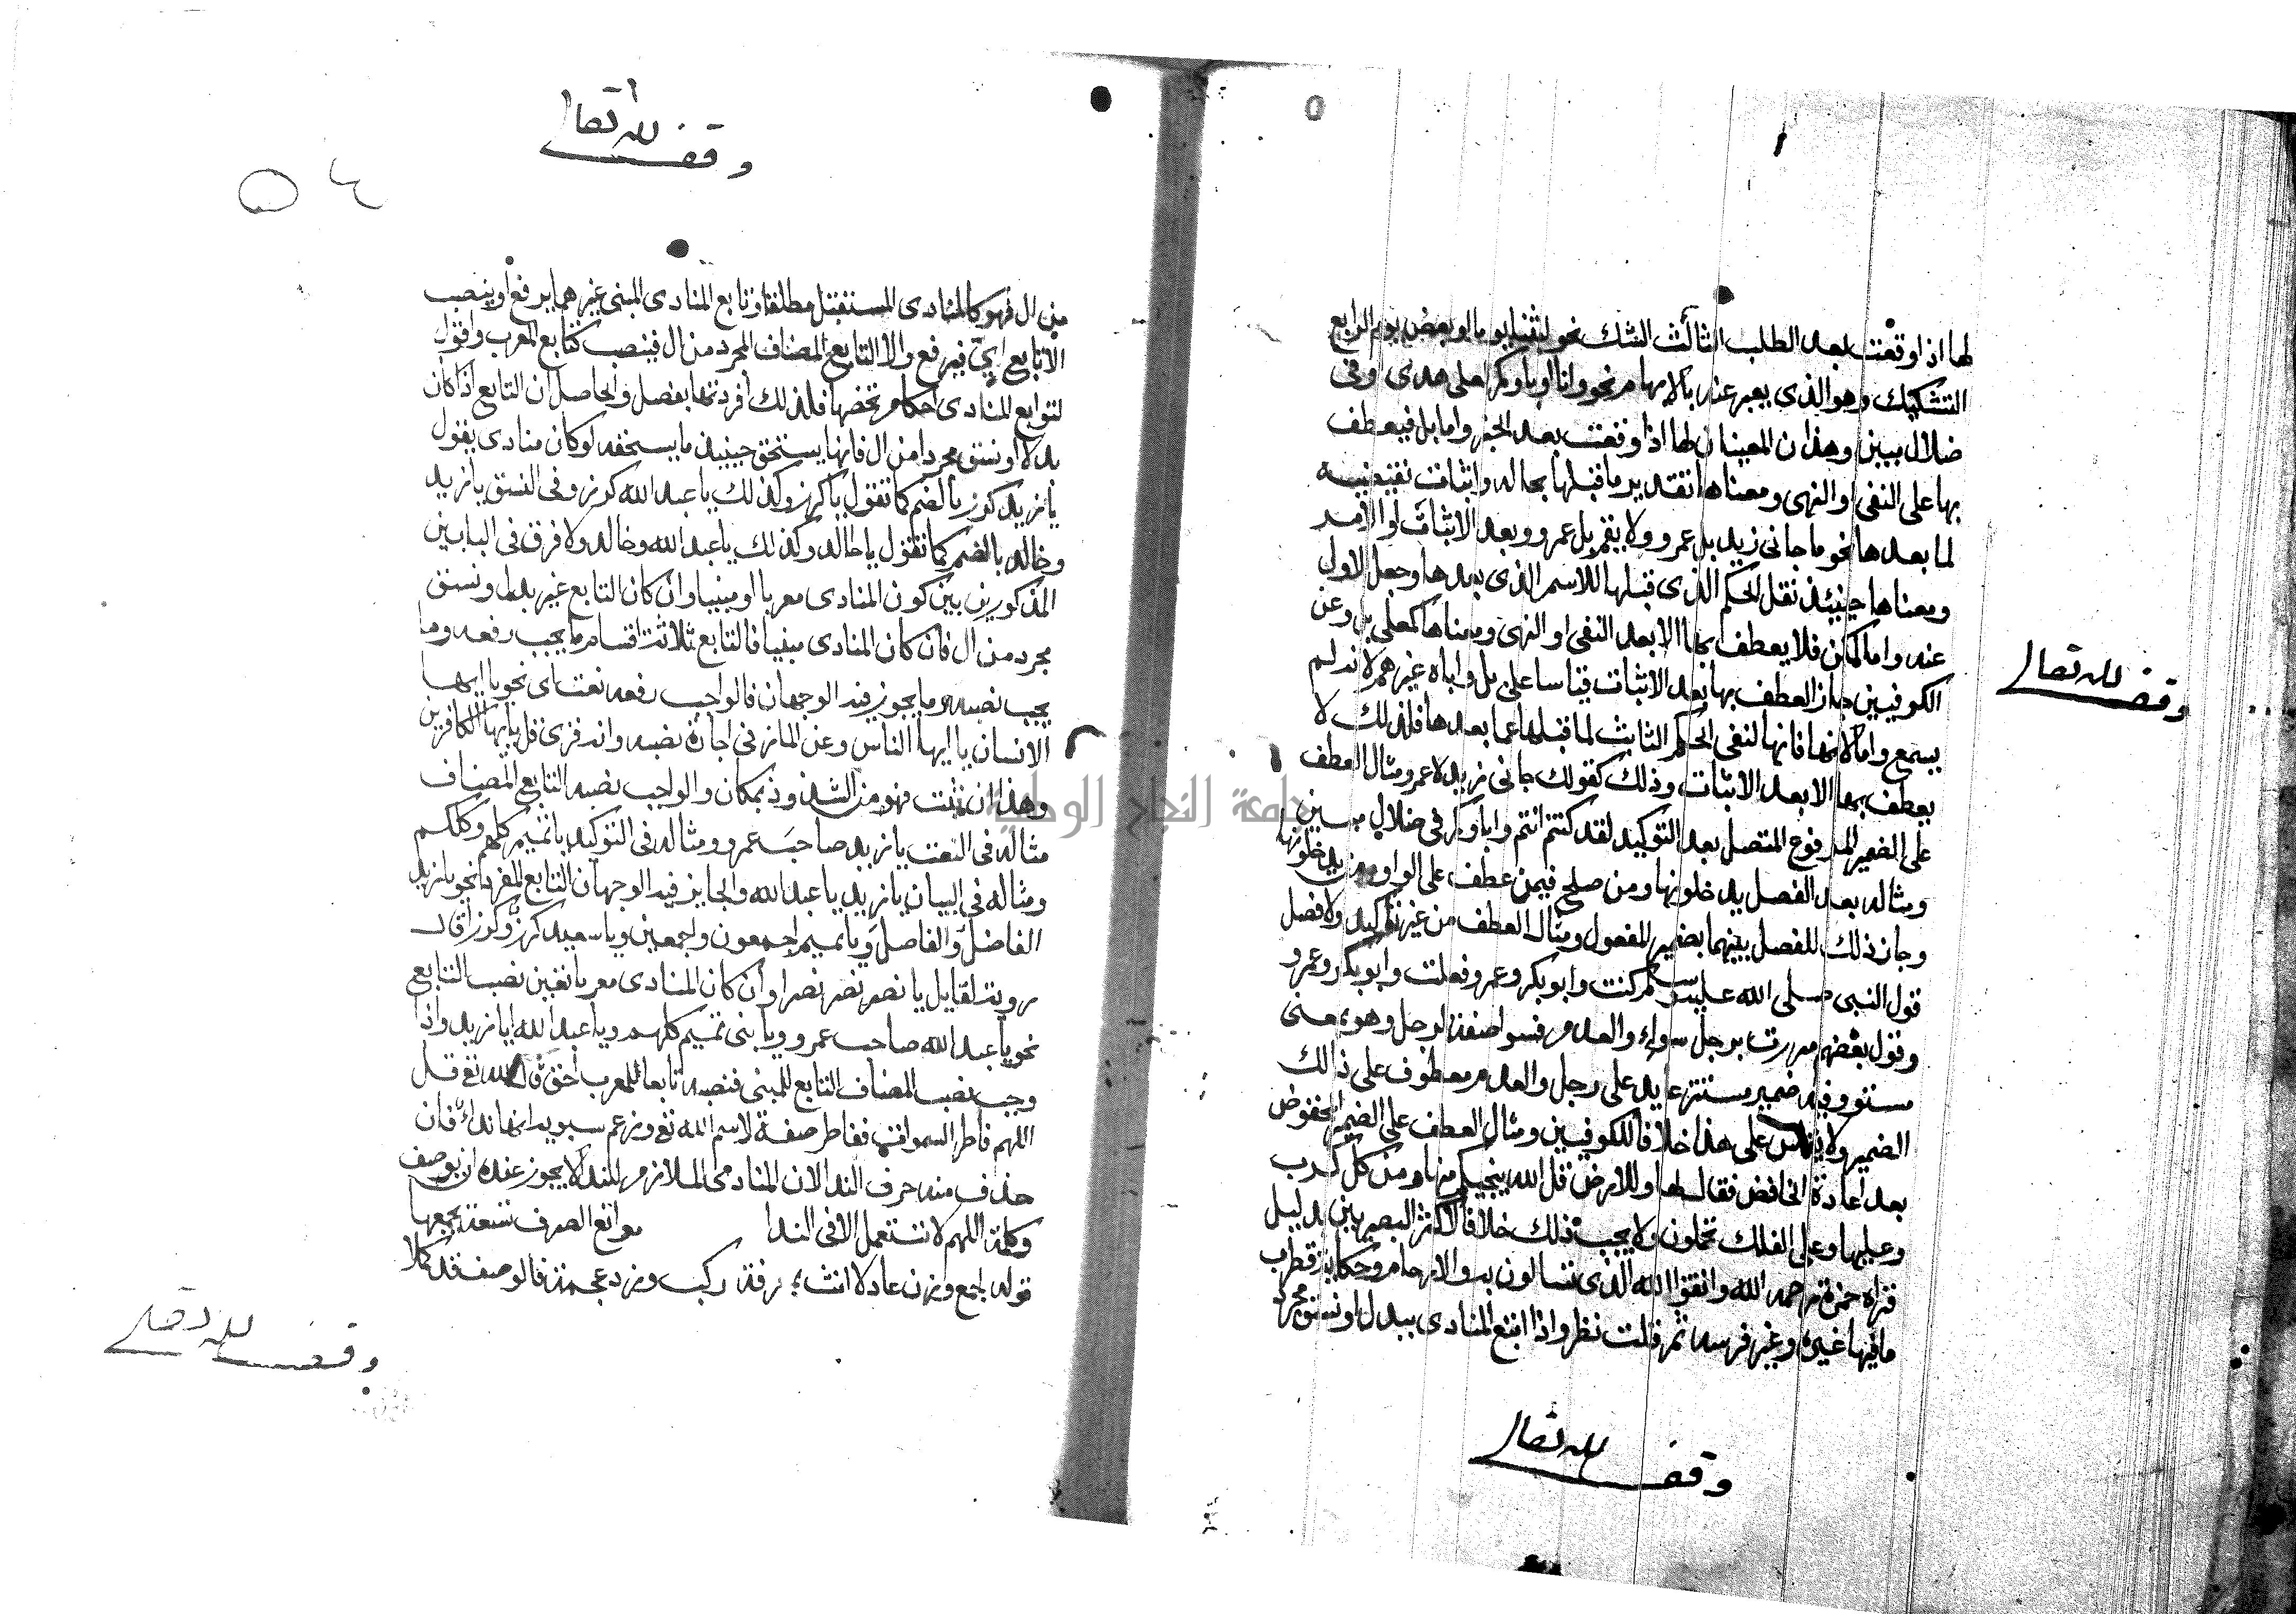 لها اذا وقعت بعد الطلب الثالث الشك نحو لبثنا يوما او بعض يوم الرابع
التشكيك وهو الذى يعبر عنه بالابهام نحو وانا او اياكم لعلى هدى وفى
ضلال مبين وهذان المعنيان لها اذا وقعت بعد الخبر واما بل فيعطف
بها على النفى او النهى ومعناها تقدير ما قبلها بحاله واثبات نقيضه
لما بعدها نحو ما جانى زيد بل عمرو ولا يقم بل عمرو وبعد الاثبات او الامر
ومعناها حينئذ نقل الحكم الذى قبلها للاسم الذى بعدها وجعل الاول
عنه واما لكن فلا يعطف بها الا بعد النفى او النهى ومعناها كمعنى بل وعن
الكوفيين جواز العطف بها بعد الاثبات قياسا على بل واباه غيرهم لانه لم
يسمع واما لا فانها لنفى الحكم الثابت لما قبلها عما بعدها فلذلك لا
يعطف بها الا بعد الاثبات وذلك كقولك جانى زيد لا عمرو ومثال العطف
على الضمير المرفوع المتصل بعد التوكيد لقد كنتم انتم واباوكم فى ضلال مبين
ومثاله بعد الفصل يدخلونها ومن صلح فيمن عطف على الواو من يدخلونها
وجاز ذلك للفصل بينهما بضمير المفعول ومثال العطف من غير توكيد ولا فصل
قول النبى صلى الله عليه وسلم كنت وابو بكر وعمر وفعلت وابو بكر وعمر و
وقول بعضهم مررت برجل سواء والعدم فسوا صفة لرجل وهو بمعنى
مستو وفيه ضمير مستتر عايد على رجل والعدم معطوف على ذلك
الضمير ولا يقاس على هذا خلافا للكوفيين ومثال العطف على الضمير المخفوض
بعد اعادة الخافض فقال لها وللارض قل الله ينجيكم منها ومن كل كرب
وعليها وعلى الفلك تحملون ولا يجب ذلك خلافا لاكثر البصريين بدليل
قراة حمزة رحمه الله واتقوا الله الذى تسالون به والارحام وحكاية قطرب
ما فيها غيره وغير فرسه ثم قلت نظر واذا اتبع المنادى ببدل او نسق مجرد
وقف لله تعالى
وقف لله تعالى
وقف لله تعالى
من ال فهو كالمنادى المستقبل مطلقا وتابع المنادى المبنى غيرهما يرفع او ينصب
الا تابع اى فيرفع والا التابع المضاف المجرد من ال فينصب كتابع المعرب واقول
لتوابع المنادى احكام تخصها فلذلك افردتها بفصل والحاصل ان التابع اذا كان
بدلا او نسق مجردا من ال فانها يستحق حينيذ ما يستحقه لو كان منادى يقول
يا زيد كرز بالضم كما تقول يا كرز وكذلك يا عبد الله كرز وفى النسق يا زيد
وخالد بالضم كما تقول يا خالد وكذلك يا عبد الله وخالد ولا فرق فى البابين
المذكورين بين كون المنادى معربا او مبنيا وان كان التابع غير بدل ونسق
مجرد من ال فان كان المنادى مبنيا فالتابع ثلاثة اقسام ما يجب رفعه وما
يجب نصبه وما يجوز فيه الوجهان فالواجب رفعه نعت اى نحو يا ايها
الانسان يا ايها الناس وعن المازنى اجازة نصبه وانه قرى قل يا ايها الكافرين
وهذا ان ثبت فهو من الشذوذ بمكان والواجب نصبه التابع المضاف
مثاله فى النعت يا زيد صاحب عمرو ومثاله فى التوكيد يا تميم كلهم وكلكم
ومثاله فى البيان يا زيد يا عبد الله والجايز فيه الوجهان التابع المفرد نحو يا زيد
الفاضل والفاضل ويا تميم اجمعون واجمعين ويا سعيد كرز وكرزا قال
رويته لقايل يا نصر نصر نصرا وان كان المنادى معربا تعين نصب التابع
نحو يا عبد الله صاحب عمرو ويا بنى تميم كلهم ويا عبد الله ابا زيد واذا
وجب نصب المضاف التابع للمبنى فنصبه تابعا للمعرب احق قال الله تع قل
اللهم فاطر السموات ففاطر صفة لاسم الله تع وزعم سيبويه انه نداء ثان
حذف منه حرف الندا لان المنادى الملازم للندا لا يجوز عنده ان يوصف
وكلمة اللهم لا تستعمل الا فى الندا موانع الصرف تسعة يجمعها
قوله اجمع وزن عادلا انث بمعرفة ركب وزد عجمة فالوصف قد كملا
وقف لله تعالى